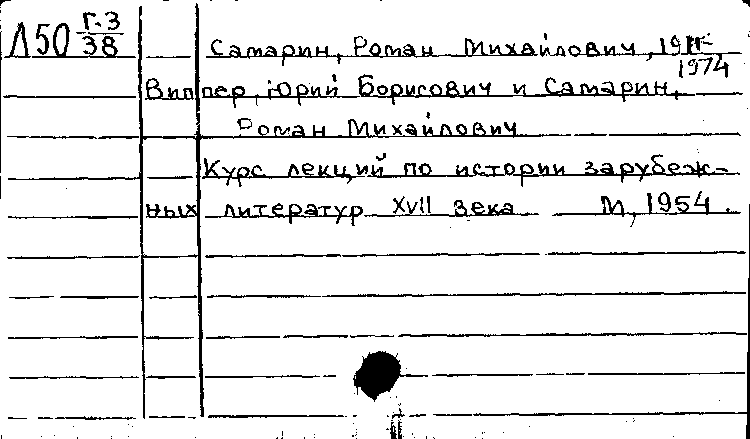 Л50 Г.3
38
Самарин, Роман Михайлович, 1911-
1974
Виппер, Юрий Борисович и Самарин,
Роман Михайлович
Курс лекций по истории зарубеж-
ных литератур XVII века М, 1954.